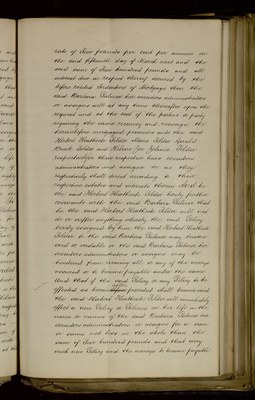 rate of Five pounds per cent per annum on
the said fifteenth day of March next and the
said sum of Five hundred pounds and all
interest due in respect thereof secured by the
before recited Indenture of Mortgage then the
said Barbara Palmer her executors administrators
or assigns will at any time thereafter upon the
request and at the cost of the parties or party
requiring the same reconvey and reassign the
hereinbefore mortgaged premises unto the said
Herbert Heathcote Fildes Marie Fildes
Fildes and
respectively their respective heirs executors
administrators and assigns or as they
respectively shall direct according to their
respective estates and interests therein And
the said Herbert Heathcote Fildes hereby further
covenants with the said Barbara Palmer that
he the said Herbert Heathcote Fildes will not
do or suffer anything whereby the said Policy
hereby assigned by him the said Herbert Heathcote
Fildes to the said Barbara Palmer may become
void or voidable or the said Barbara Palmer her
executors administrators or assigns may be
hindered from receiving all or any of the moneys
assured or to become payable under the same
And that if the said Policy or any Policy to be
effected as hereinafter provided shall become void
the said Herbert Heathcote Fildes will immediately
effect a new Policy or Policies on his life in the
name or names of the said Barbara Palmer her
executors administrators or assigns for a sum
or sums not less in the whole than the
sum of Five hundred pounds and that every
such new Policy and the moneys to become payable